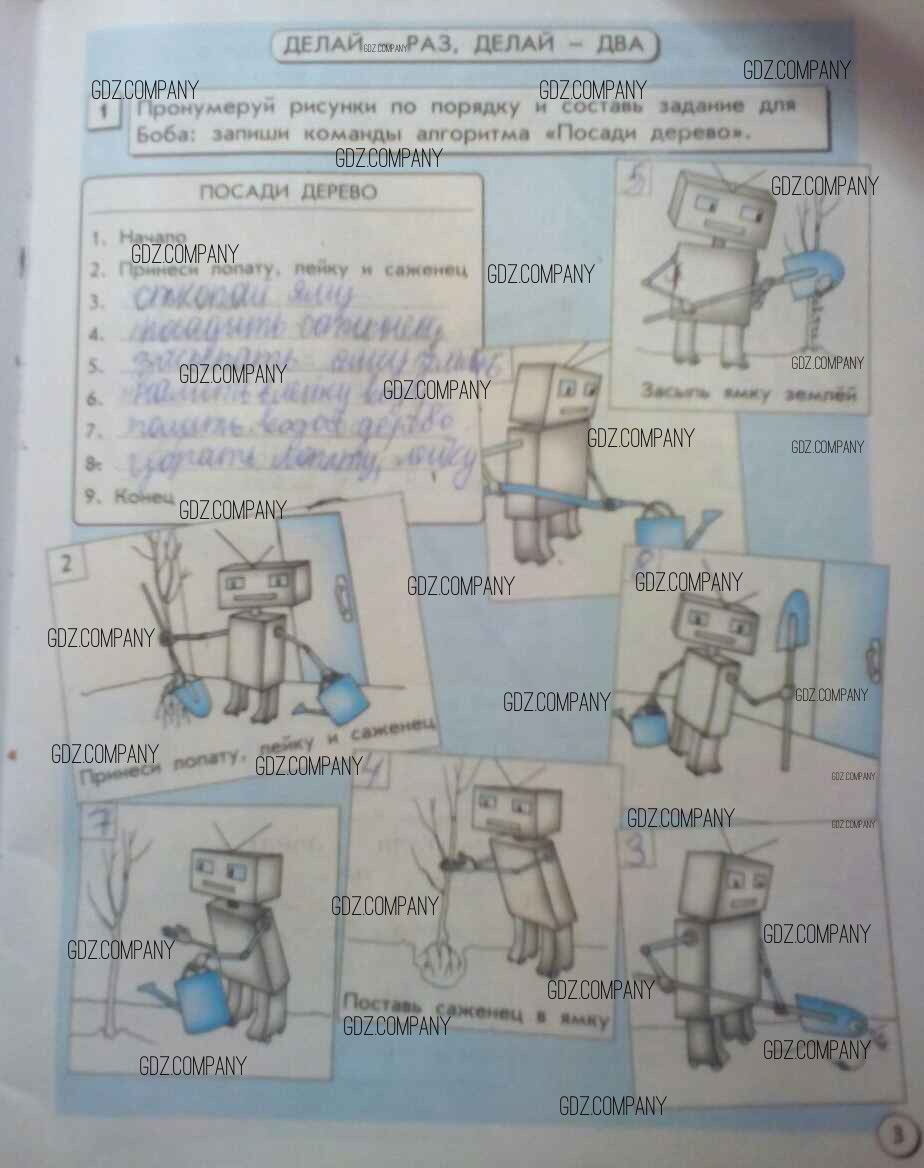 ДЕЛАЙ РАЗ, ДЕЛАЙ – ДВА
GDZ.COMPANY
GDZ.COMPANY
GDZ.COMPANY
GDZ.COMPANY
1 Пронумеруй рисунки по порядку и составь задание для
Боба: запиши команды алгоритма «Посади дерево».
GDZ.COMPANY
ПОСАДИ ДЕРЕВО
1. Начало
GDZ.COMPANY
2. Принеси лопату, лейку и саженец
3. яму
4. посадить саженец
5. засыпать яму
GDZ.COMPANY
6. налить
7. полить водой дерево
8. убрать лопату, лейку
9. Конец
GDZ.COMPANY
5
GDZ.COMPANY
GDZ.COMPANY
GDZ.COMPANY
Засыпь ямку землёй
GDZ.COMPANY
GDZ.COMPANY
GDZ.COMPANY
GDZ.COMPANY
2
GDZ.COMPANY
GDZ.COMPANY
GDZ.COMPANY
Принеси лопату, лейку и саженец
GDZ.COMPANY
GDZ.COMPANY
GDZ.COMPANY
GDZ.COMPANY
GDZ.COMPANY
GDZ.COMPANY
7
GDZ.COMPANY
GDZ.COMPANY
4
GDZ.COMPANY
GDZ.COMPANY
Поставь саженец в ямку
GDZ.COMPANY
3
GDZ.COMPANY
GDZ.COMPANY
GDZ.COMPANY
3